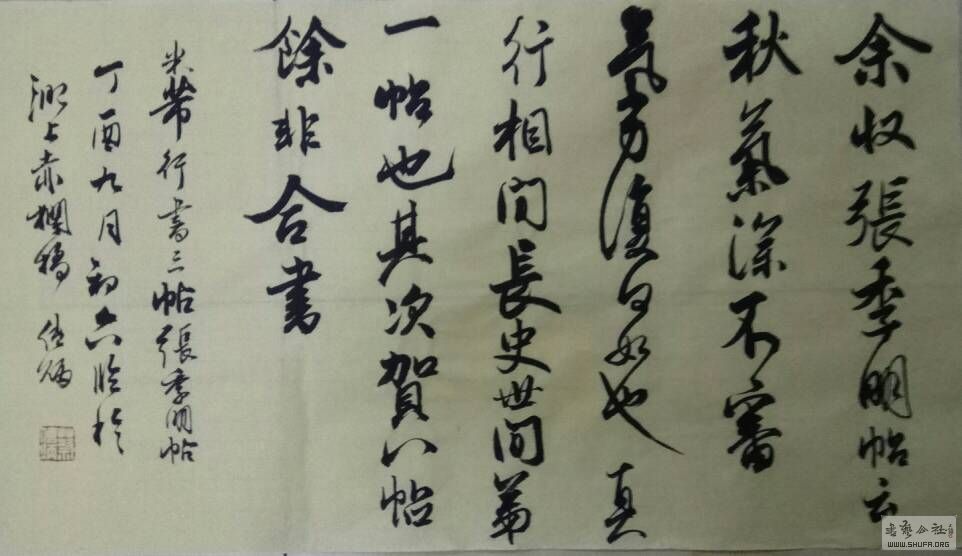 余收張季明帖云
秋氣深不審
氣力復何如也 真
行相間長史世間第
一帖也其次賀八帖
餘非合書
米芾行書三帖張季明帖
丁酉九月初六臨於
上赤欄橋
書艺公社
WWW.SHUFA.ORG